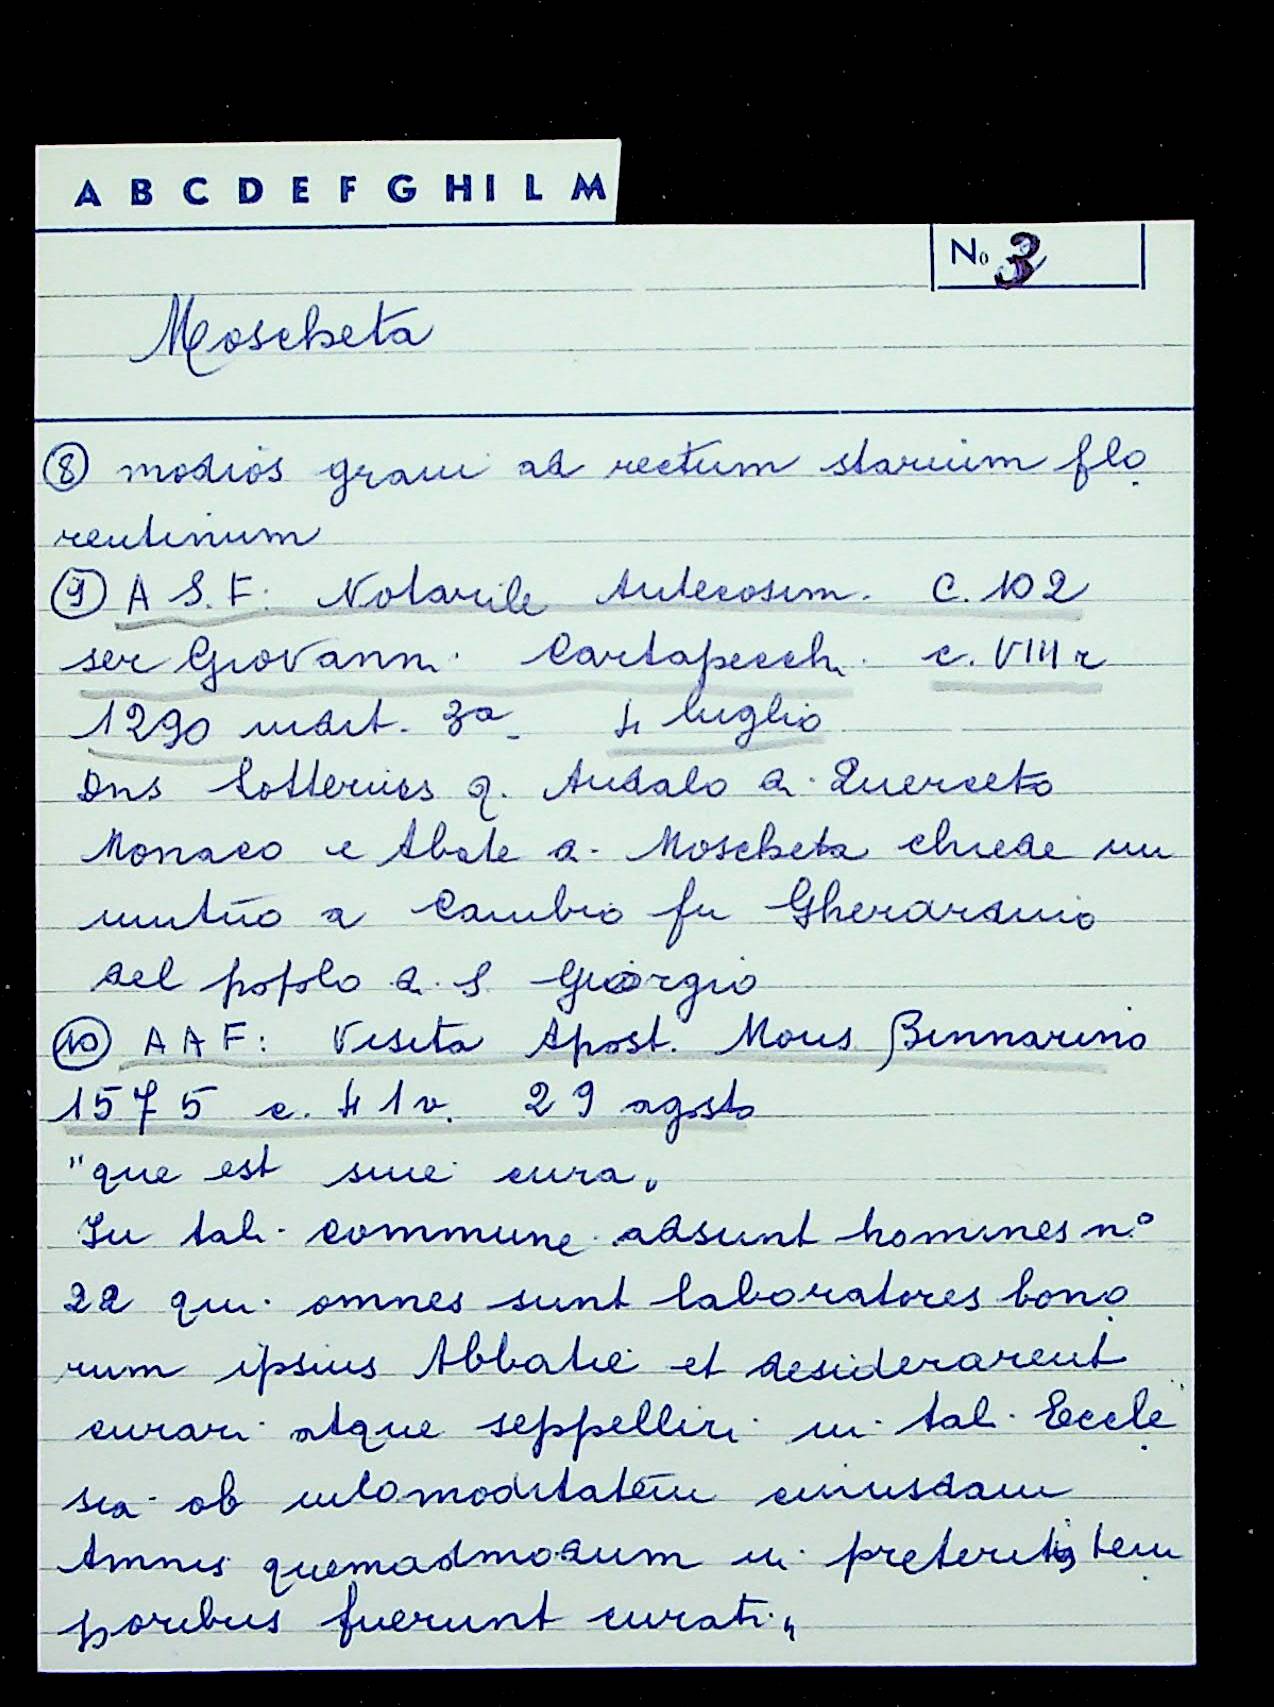 A B C D E F G H I L M
No 3
Moscheta
⑧ modios grani ad rectum starium flo
rentinum
⑨ A S. F: Notarile Antecosim. C. 102
ser Giovanni Cartapecchi c. VIII r
1290 indit. 3a 4 luglio
Dns Lotterius q. Andalo di Querceto
Monaco e Abate di Moscheta chiede un
mutuo a Cambio fu Gherardino
del popolo di S Giorgio
⑩ A A F: Visita Apost. Mons Binnarino
1575 c. 41v. 29 agosto
"que est sine cura"
In tali commune adsunt homines n.°
22 qui omnes sunt laboratores bono
rum ipsius Abbatie et desiderarent
curari atque seppelliri in tali Eccle
sia ob incomoditatem cuiusdam
Amnis quemadmodum in preteritis tem
poribus fuerunt curati"